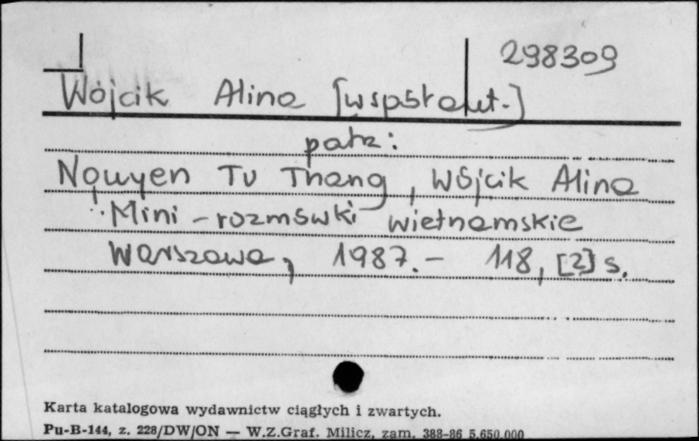 298309
Wójcik Alina [współaut.]
patz:
Nguyen Tu Thang, Wójcik Alina
Mini-rozmówki wietnamskie
Warszawa, 1987.- 118, [2] s.
Karta katalogowa wydawnictw ciągłych i zwartych.
Pu-B-144, z. 228/DW/ON — W.Z.Graf. Milicz, zam. 388-86 5.650.000